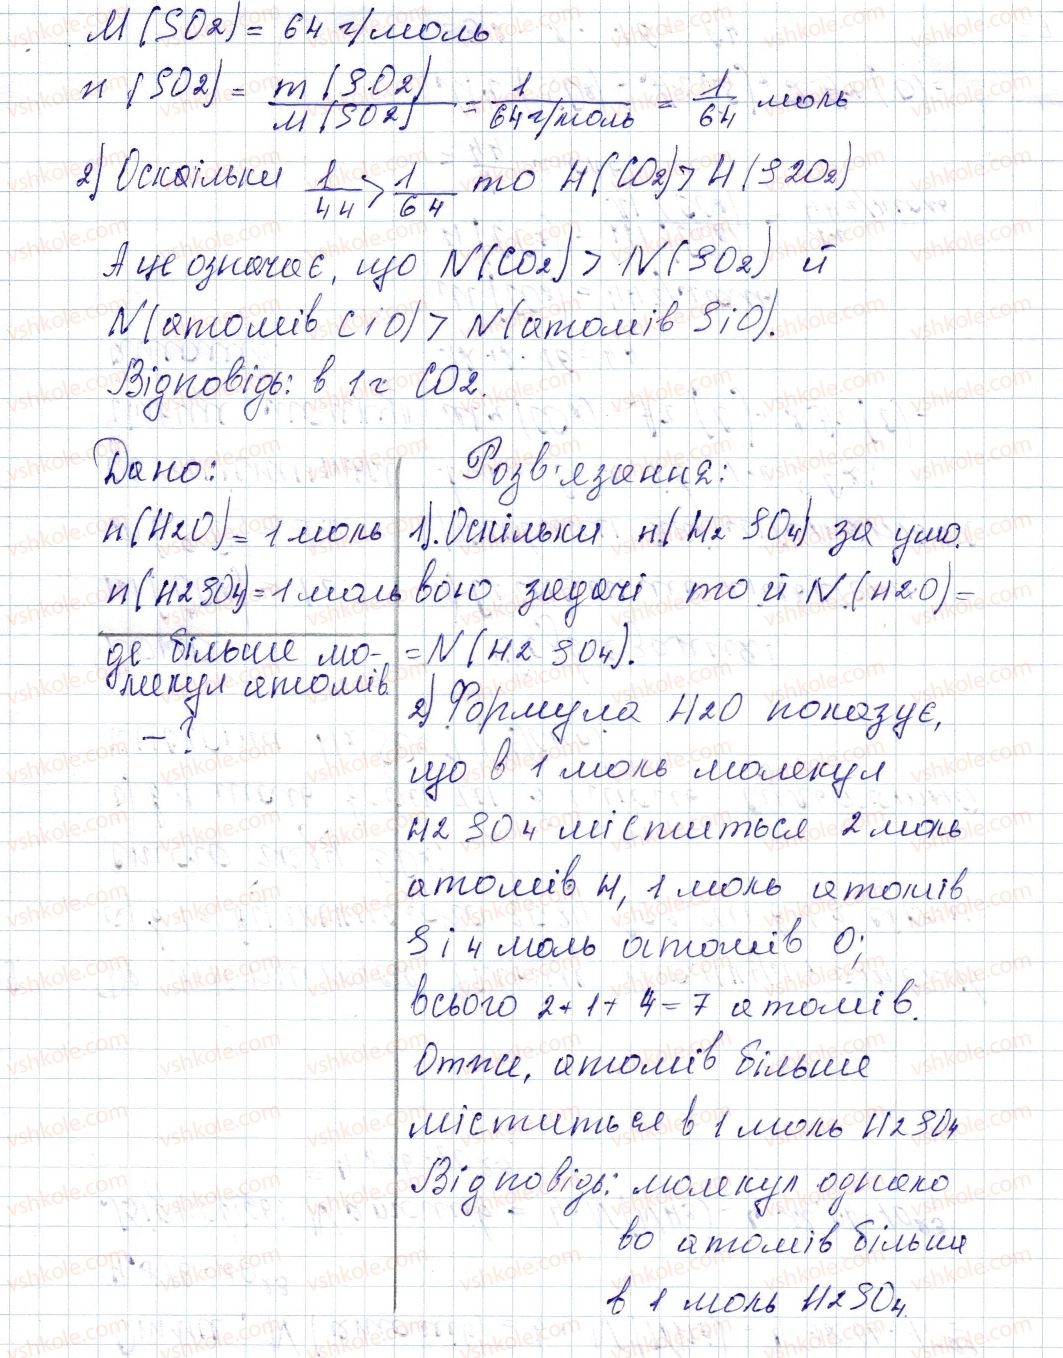 M(SO2) = 64 г/моль
n(SO2) = m(SO2)/M(SO2) = 1/64 г/моль = 1/64 моль
2) Оскільки 1/44 > 1/64 то H(CO2) > H(S2O2)
А це означає, що N(CO2) > N(SO2) й
N(атомів C і O) > N(атомів S і O).
Відповідь: в 1 г CO2.
Дано:
n(H2O) = 1 моль
n(H2SO4) = 1 моль
де більше мо-
лекул атомів
– ?
Розв'язання:
1). Оскільки н.(H2SO4) за умо.
вою задачі то й N(H2O) =
= N(H2SO4).
2) Формула H2O показує,
що в 1 моль молекул
H2SO4 міститься 2 моль
атомів H, 1 моль атомів
S і 4 моль атомів O;
всього 2+1+4=7 атомів.
Отже, атомів більше
міститься в 1 моль H2SO4
Відповідь: молекул однако
во атомів більше
в 1 моль H2SO4.